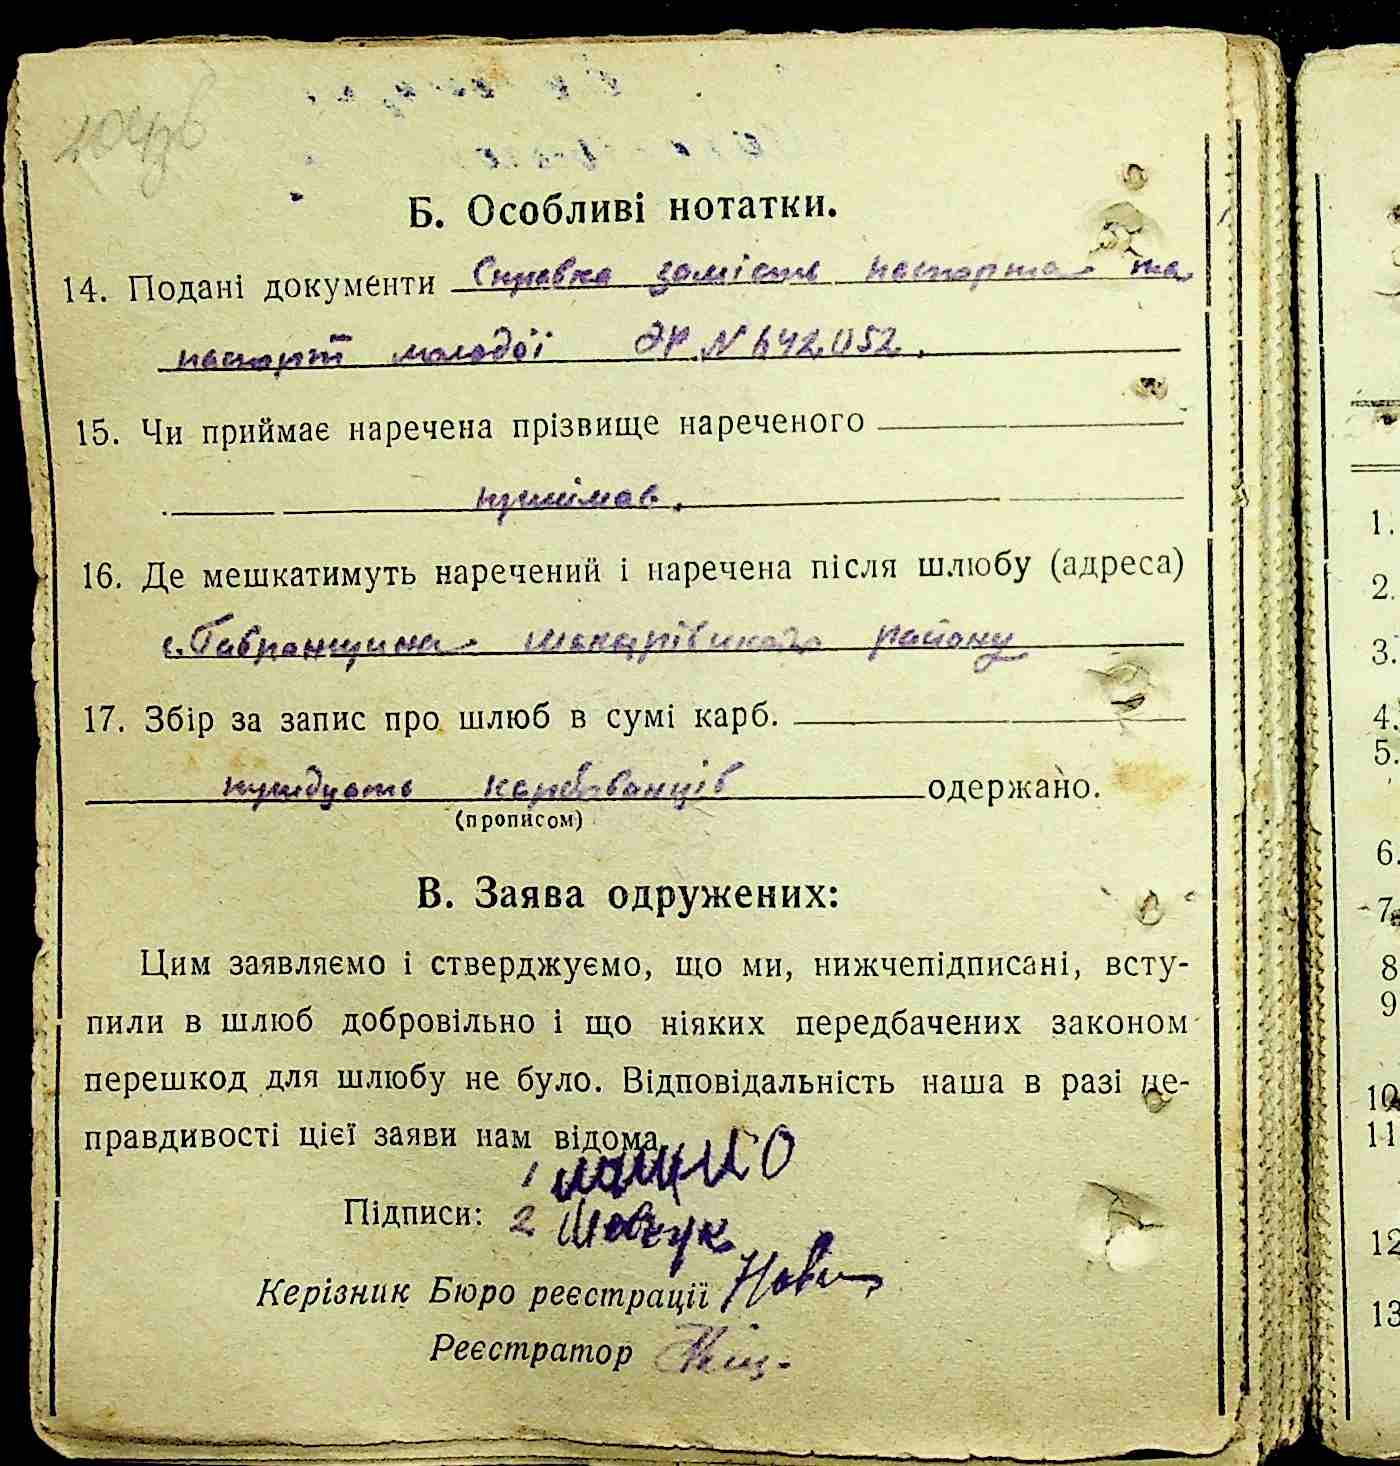 Б. Особливі нотатки.
14. Подані документи Справка замість паспорта та
паспорт молодої ЭР № 642052.
15. Чи приймає наречена прізвище нареченого
приймає.
16. Де мешкатимуть наречений і наречена після шлюбу (адреса)
с. Гавронщина Макарівського району
17. Збір за запис про шлюб в сумі карб.
тридцать карбованців одержано.
(прописом)
В. Заява одружених:
Цим заявляємо і стверджуємо, що ми, нижчепідписані, всту-
пили в шлюб добровільно і що ніяких передбачених законом
перешкод для шлюбу не було. Відповідальність наша в разі не-
правдивості цієї заяви нам відома.
1
Підписи: 2 Шевчук
Керівник Бюро реєстрації
Реєстратор
1.
2.
3.
4.
5.
6.
7.
8
9
10
11
12
13